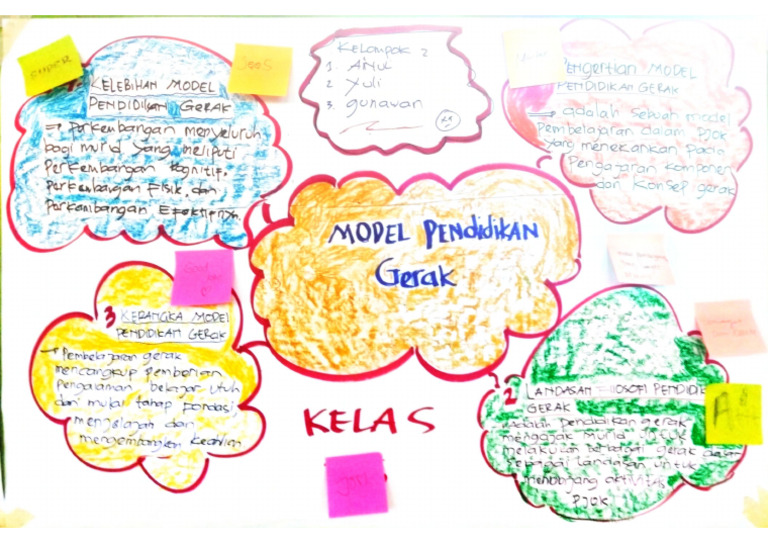 SUPER
KELEBIHAN MODEL
PENDIDIKAN GERAK
⇒ Perkembangan menyeluruh
bagi murid yang meliputi
Perkembangan kognitif,
Perkembangan Fisik, dan
Perkembangan Efektifnya
Kelompok 2
1. 
2 Yuli
3 gunawan
Pengertian MODEL
PENDIDIKAN GERAK
⇒ adalah sebuah model
Pembelajaran dalam PJOK
yang menekankan pada
Pengajaran komponen
dan Konsep gerak
MODEL PENdidiKAN
Gerak
Good
3 KERANGKA MODEL
PENDIDIKAN GERAK
→ Pembelajaran gerak
mencangkup pemberian
Pengalaman belajar utuh
dari mulai tahap pondasi
mengembangkan keahlian
KELAS
2 LANDASAN FILOSOFI PENDIDIK
GERAK
adalah pendidikan gerak
mengajak murid untuk
melakukan berbagai gerak dasar
sebagai landasan untuk
menunjang aktivitas
PJOK
A+